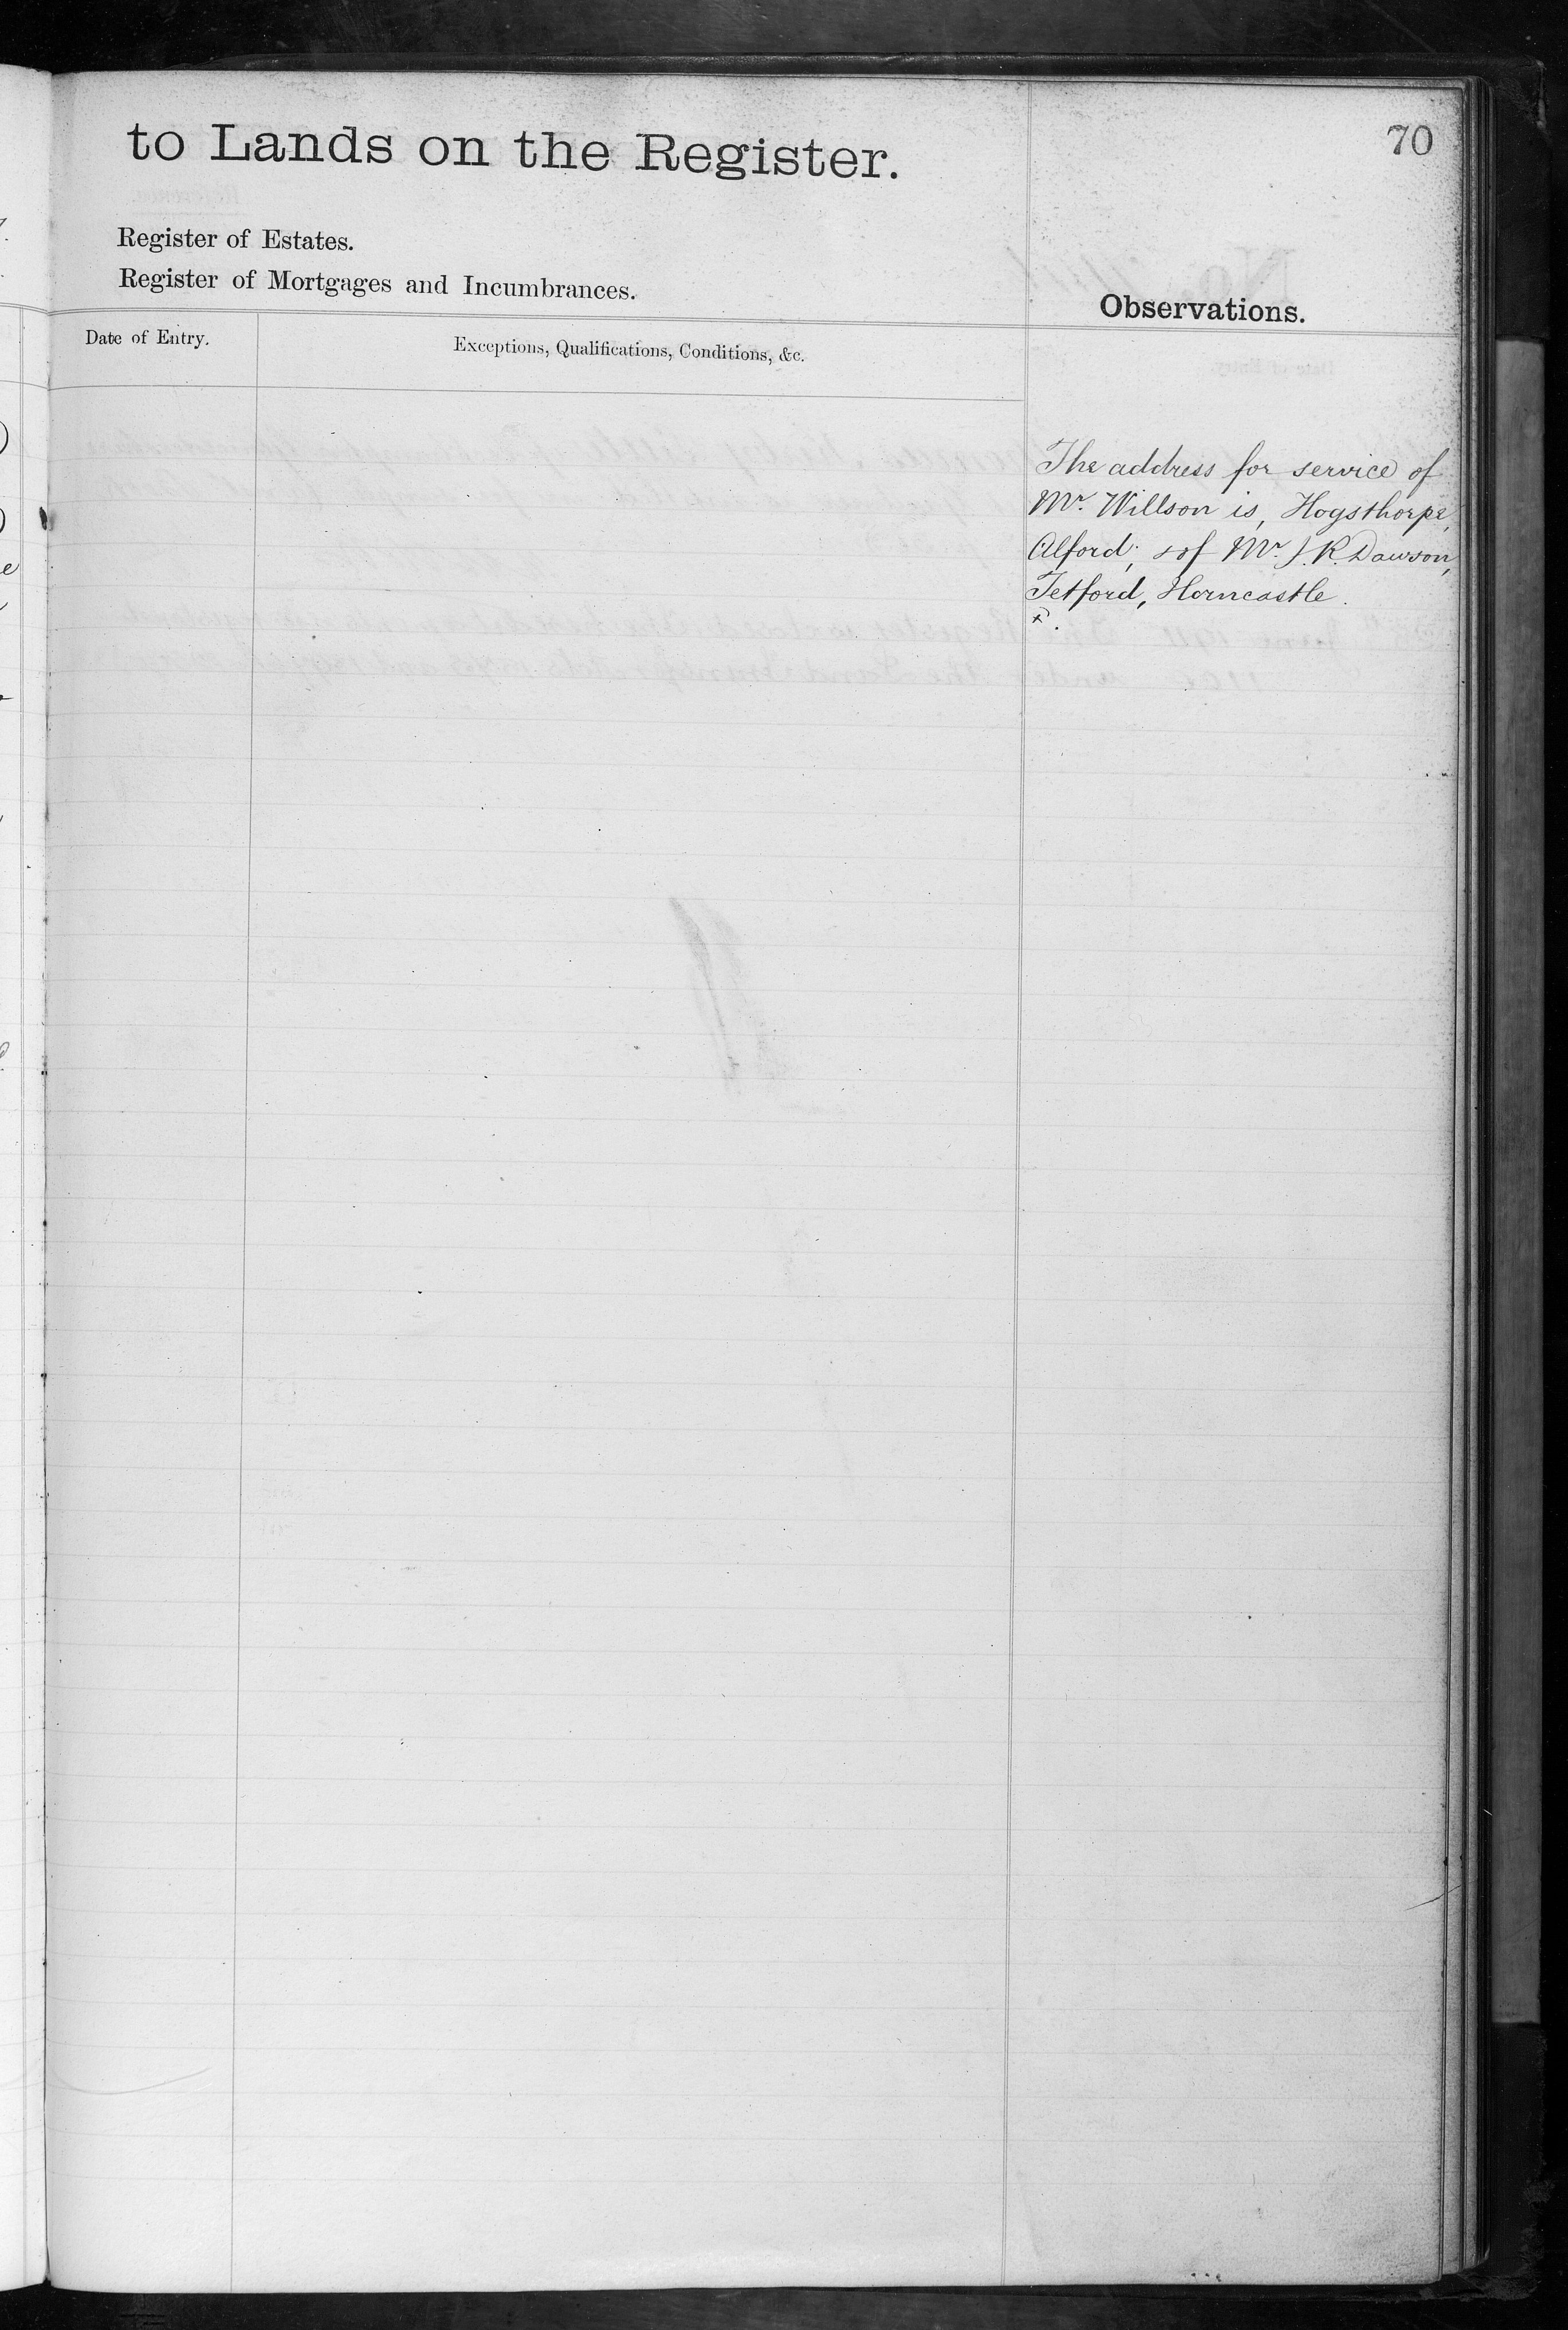 to Lands on the Register.
70
Register of Estates.
Register of Mortgages and Incumbrances.
Observations.
Date of Entry.
Exceptions, Qualifications, Conditions, &c.
The address for service of
Mr. Willson is, Hogsthorpe,
Alford; & of Mr. J. K. Dawson,
Tetford, Horncastle.